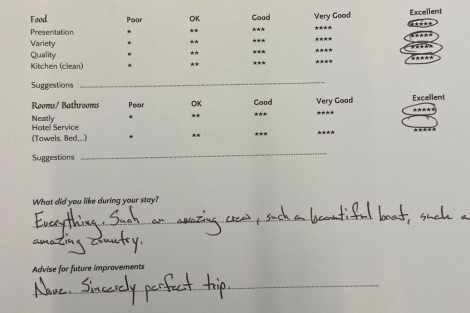 Food Poor OK Good Very Good Excellent
Presentation * ** *** **** *****
Variety * ** *** **** *****
Quality * ** *** **** *****
Kitchen (clean) * ** *** **** *****
Suggestions
Rooms/ Bathrooms Poor OK Good Very Good Excellent
Neatly * ** *** **** *****
Hotel Service
(Towels, Bed...) * ** *** **** *****
Suggestions
What did you like during your stay?
Everything. Such an amazing crew, such a beautiful boat, such a
amazing country.
Advise for future improvements
None. Sincerely perfect trip.